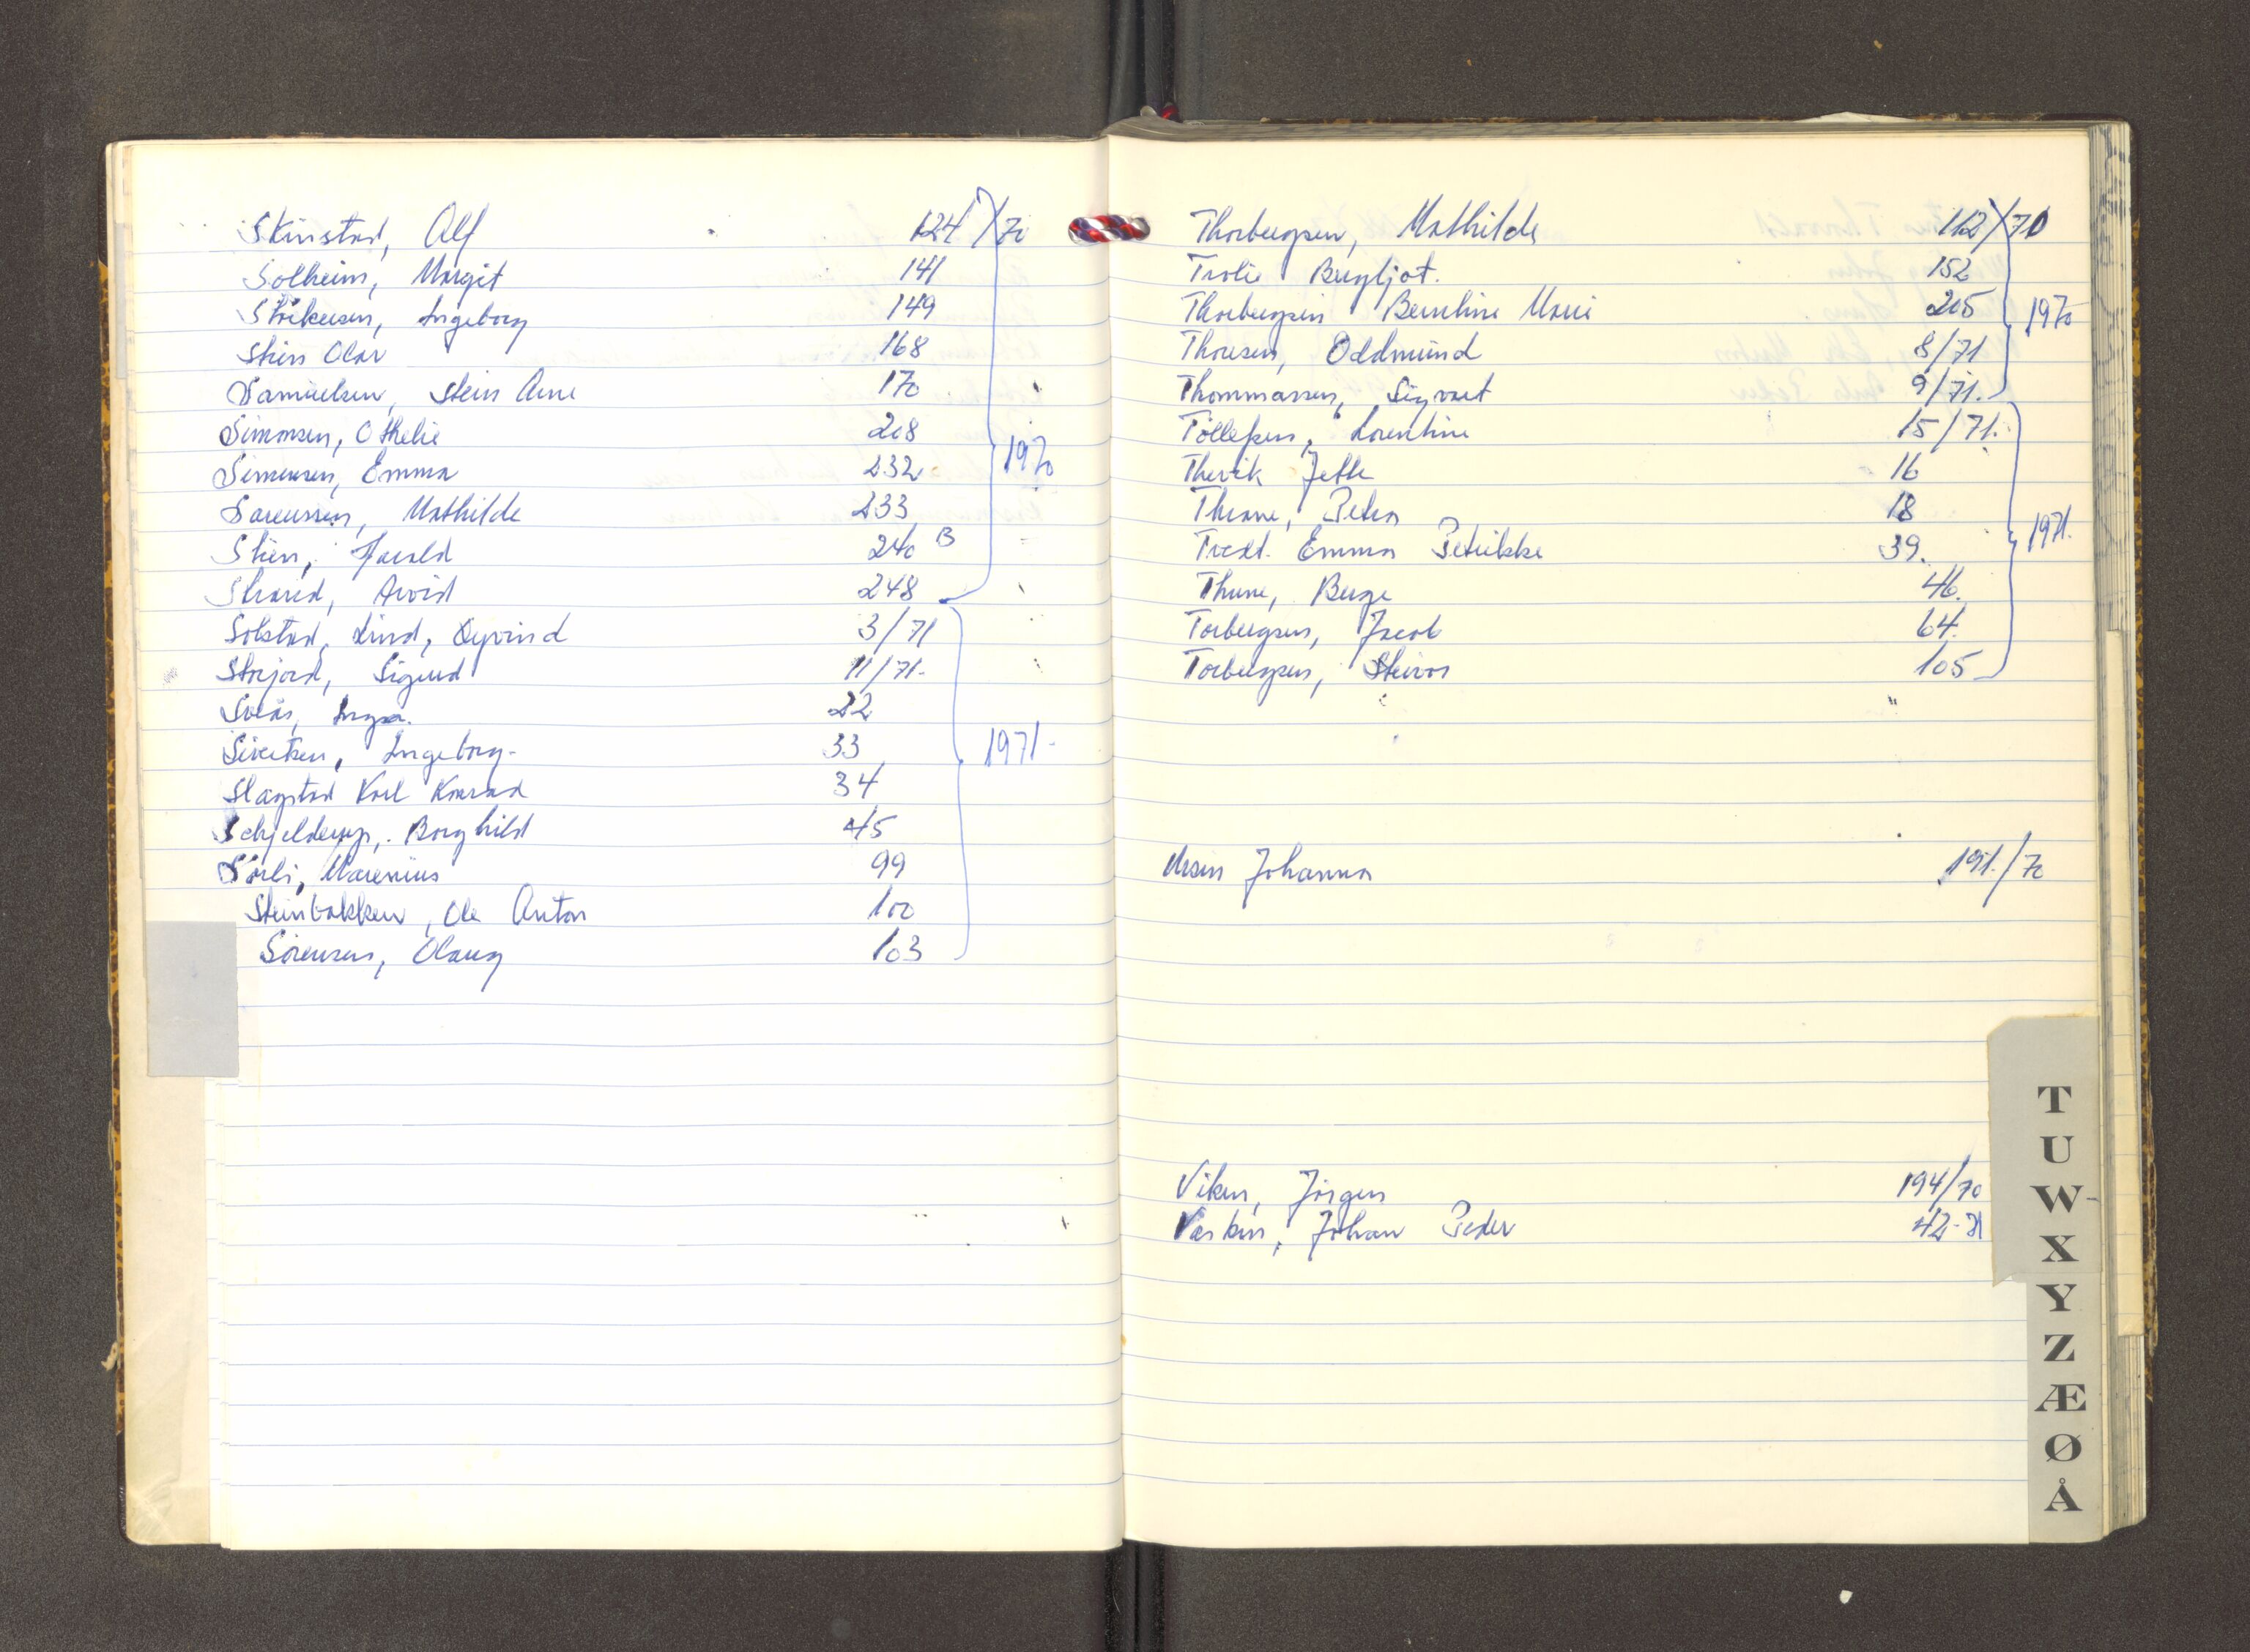 Skinstad, Alf 124/70
Solheim, Margit 141
Størkersen, Ingeborg 149
Stien Olav 168
Samuelsen, Stein Arne 170
Simonsen, Othelie 208
Simensen, Emma 232
1970
Sørenssen, Mathilde 233
Stien, Harald 240 B
Strand, Arvid 248
Solstad, Lind, Øyvind 3/71
Storjord, Sigurd 11/71.
Solås, Inga. 22
Sivertsen, Ingeborg- 33
1971-
Slagstad Karl Konrad 34
Schjelderup, Borghild 45
Sørli, Marenius 99
Steinbakken, Ole Anton 100
Sørensen, Olaug 103
Thorbergsen, Mathilde 162/70
Trolie Bergljot. 152
Thorbergsen Bernhine Marie 205
1970
Thoresen, Oddmund 8/71
Thommassen, Sigvart 9/71.
Tollefsen, Lorentine 15/71.
Thervik Jette 16
Thrane, Petra 18
1971.
Tredt. Emma Petrikke 39.
Thune, Berge 46.
Torbergsen, Jacob 64.
Torbergsen, 105
Ursin Johanna 191./70
Viken, Jørgen 194/70
Johan Peder 42-71
T
U
W-
X
Y
Z
Æ
Ø
Å